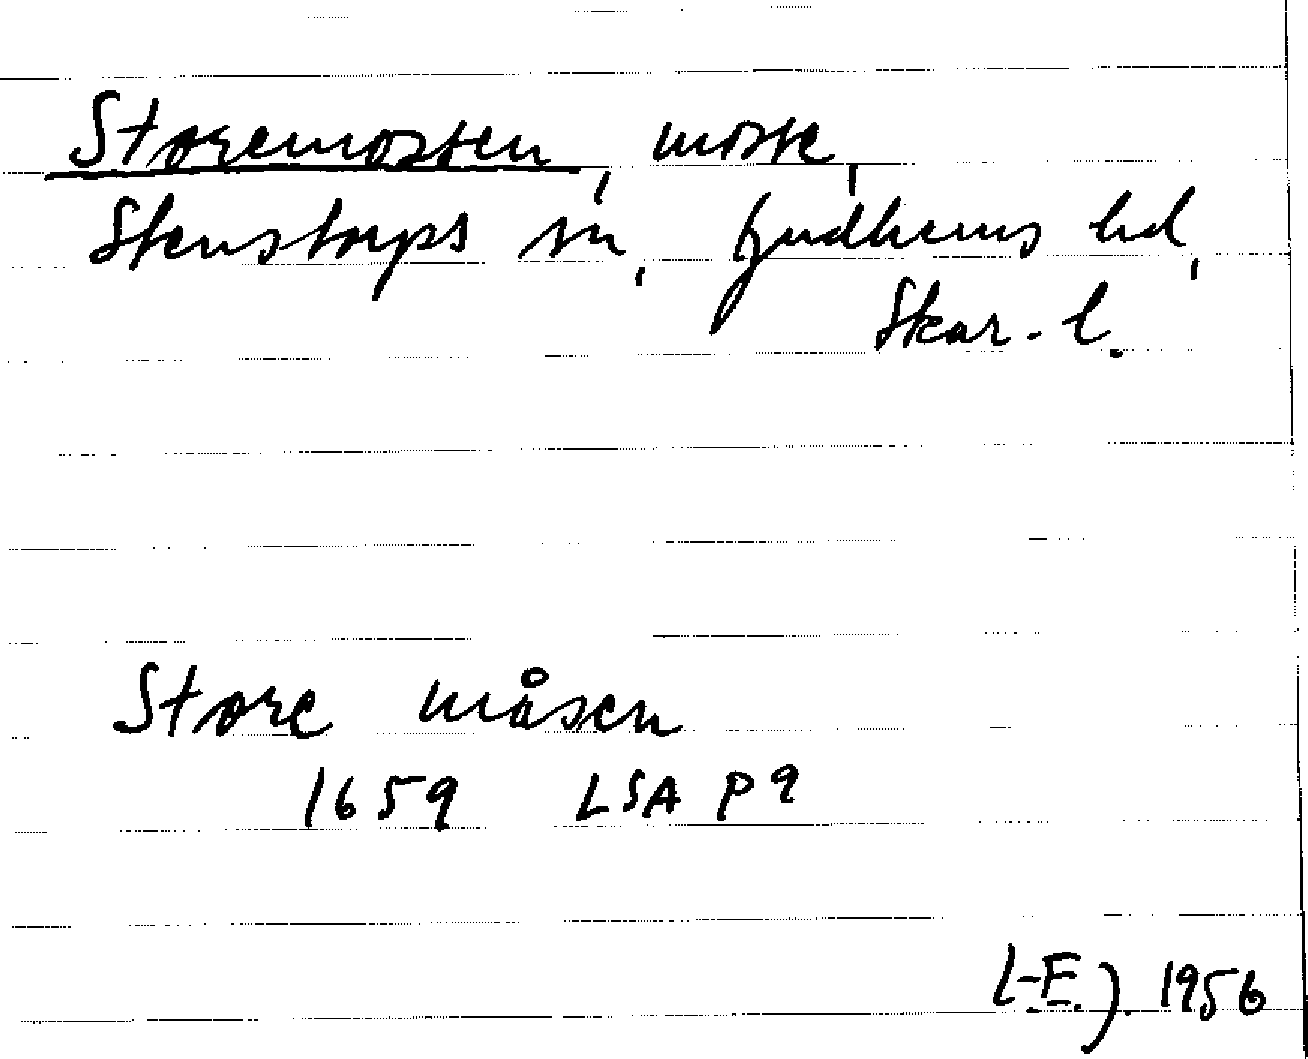 Storemossen, mosse,
Stenstorps sn, Gudhems hd,
Skar. l.
Store måsen
1659 LSA P9
L-E. J. 1956